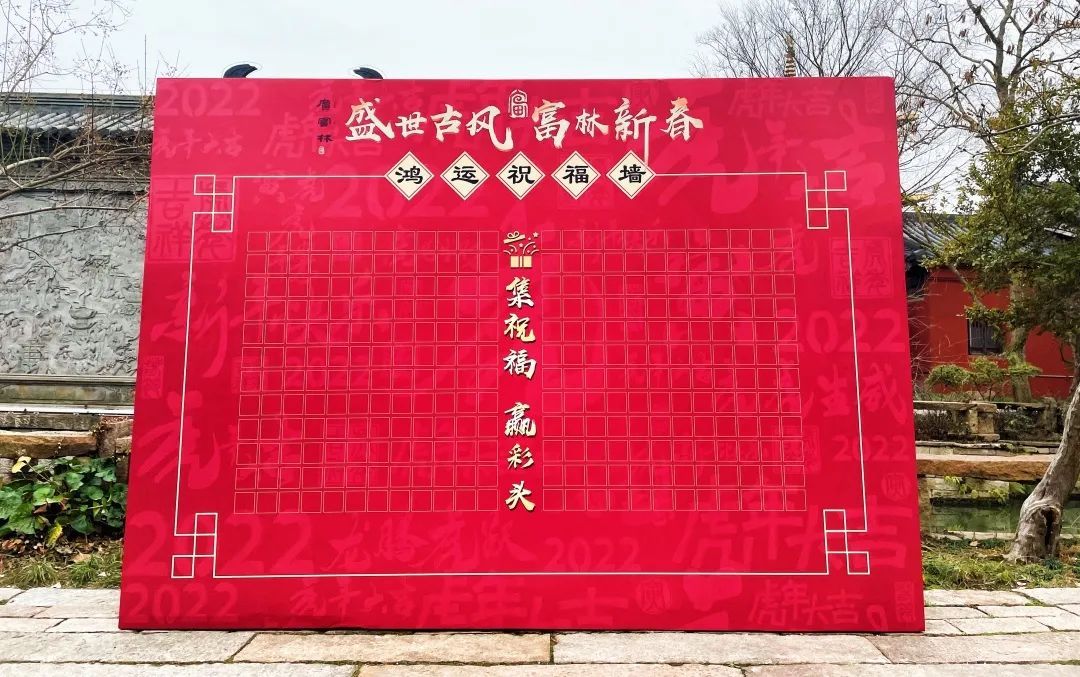 2022
廣富林
盛世古风 富林新春
鸿运祝福墙
集祝福 赢彩头
吉祥
2022
2022
2022
龙腾虎跃
2022
2022
虎年大吉
2022
虎年大吉